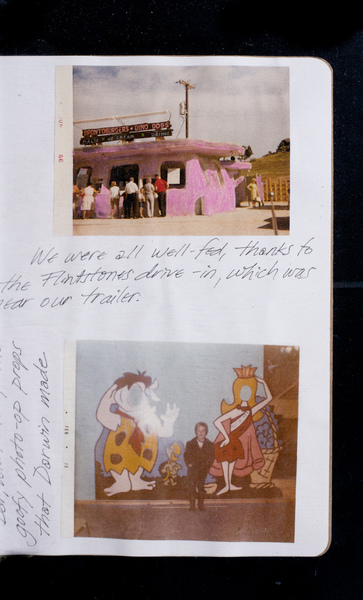 BRONTOBURGERS • DINO DOGS
ICE CREAM
We were all well-fed, thanks to
the Flintstones drive-in, which was
near our trailer.
goofy photo op props
that Darwin made